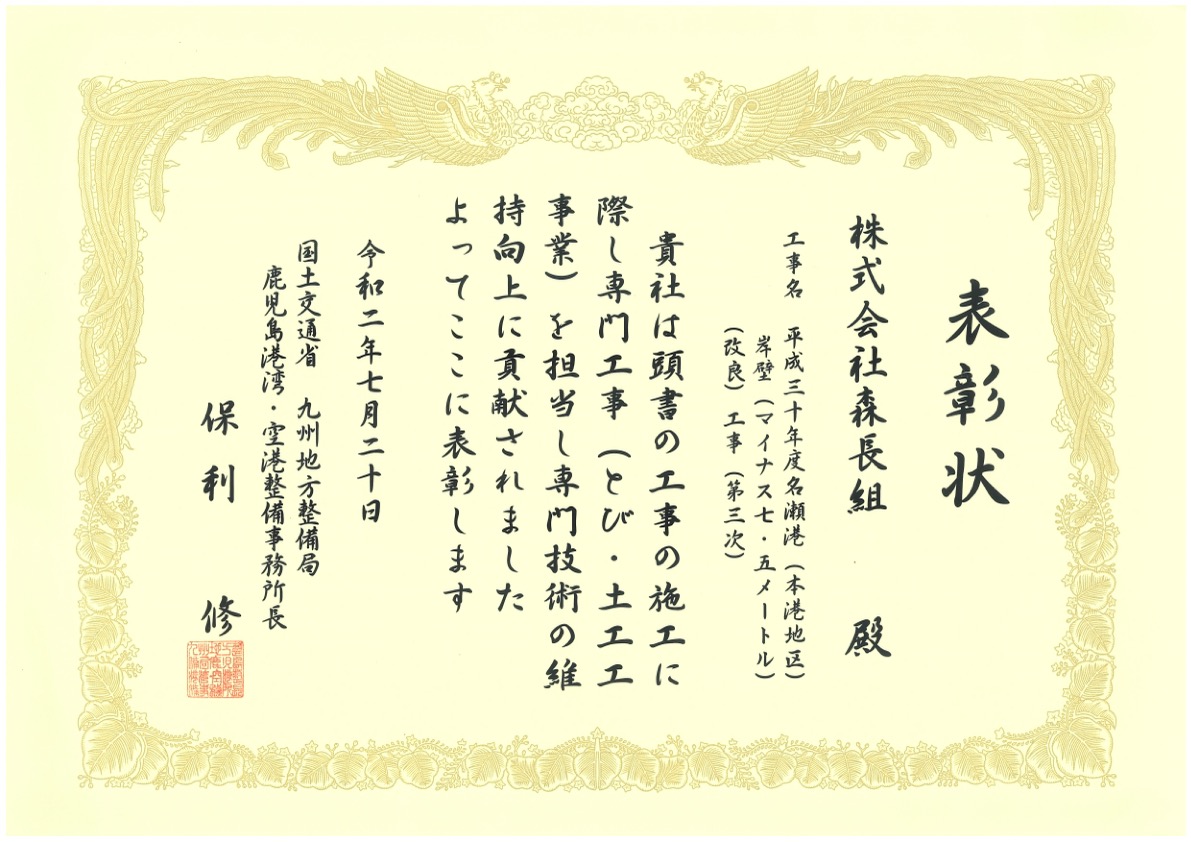 表彰状
株式会社森長組 殿
工事名 平成三十年度名瀬港(本港地区)
岸壁(マイナス七・五メートル)
(改良)工事(第三次)
貴社は頭書の工事の施工に
際し専門工事(とび・土工工
事業)を担当し専門技術の維
持向上に貢献されました
よってここに表彰します
令和二年七月二十日
国土交通省 九州地方整備局
鹿児島港湾・空港整備事務所長
保利 修